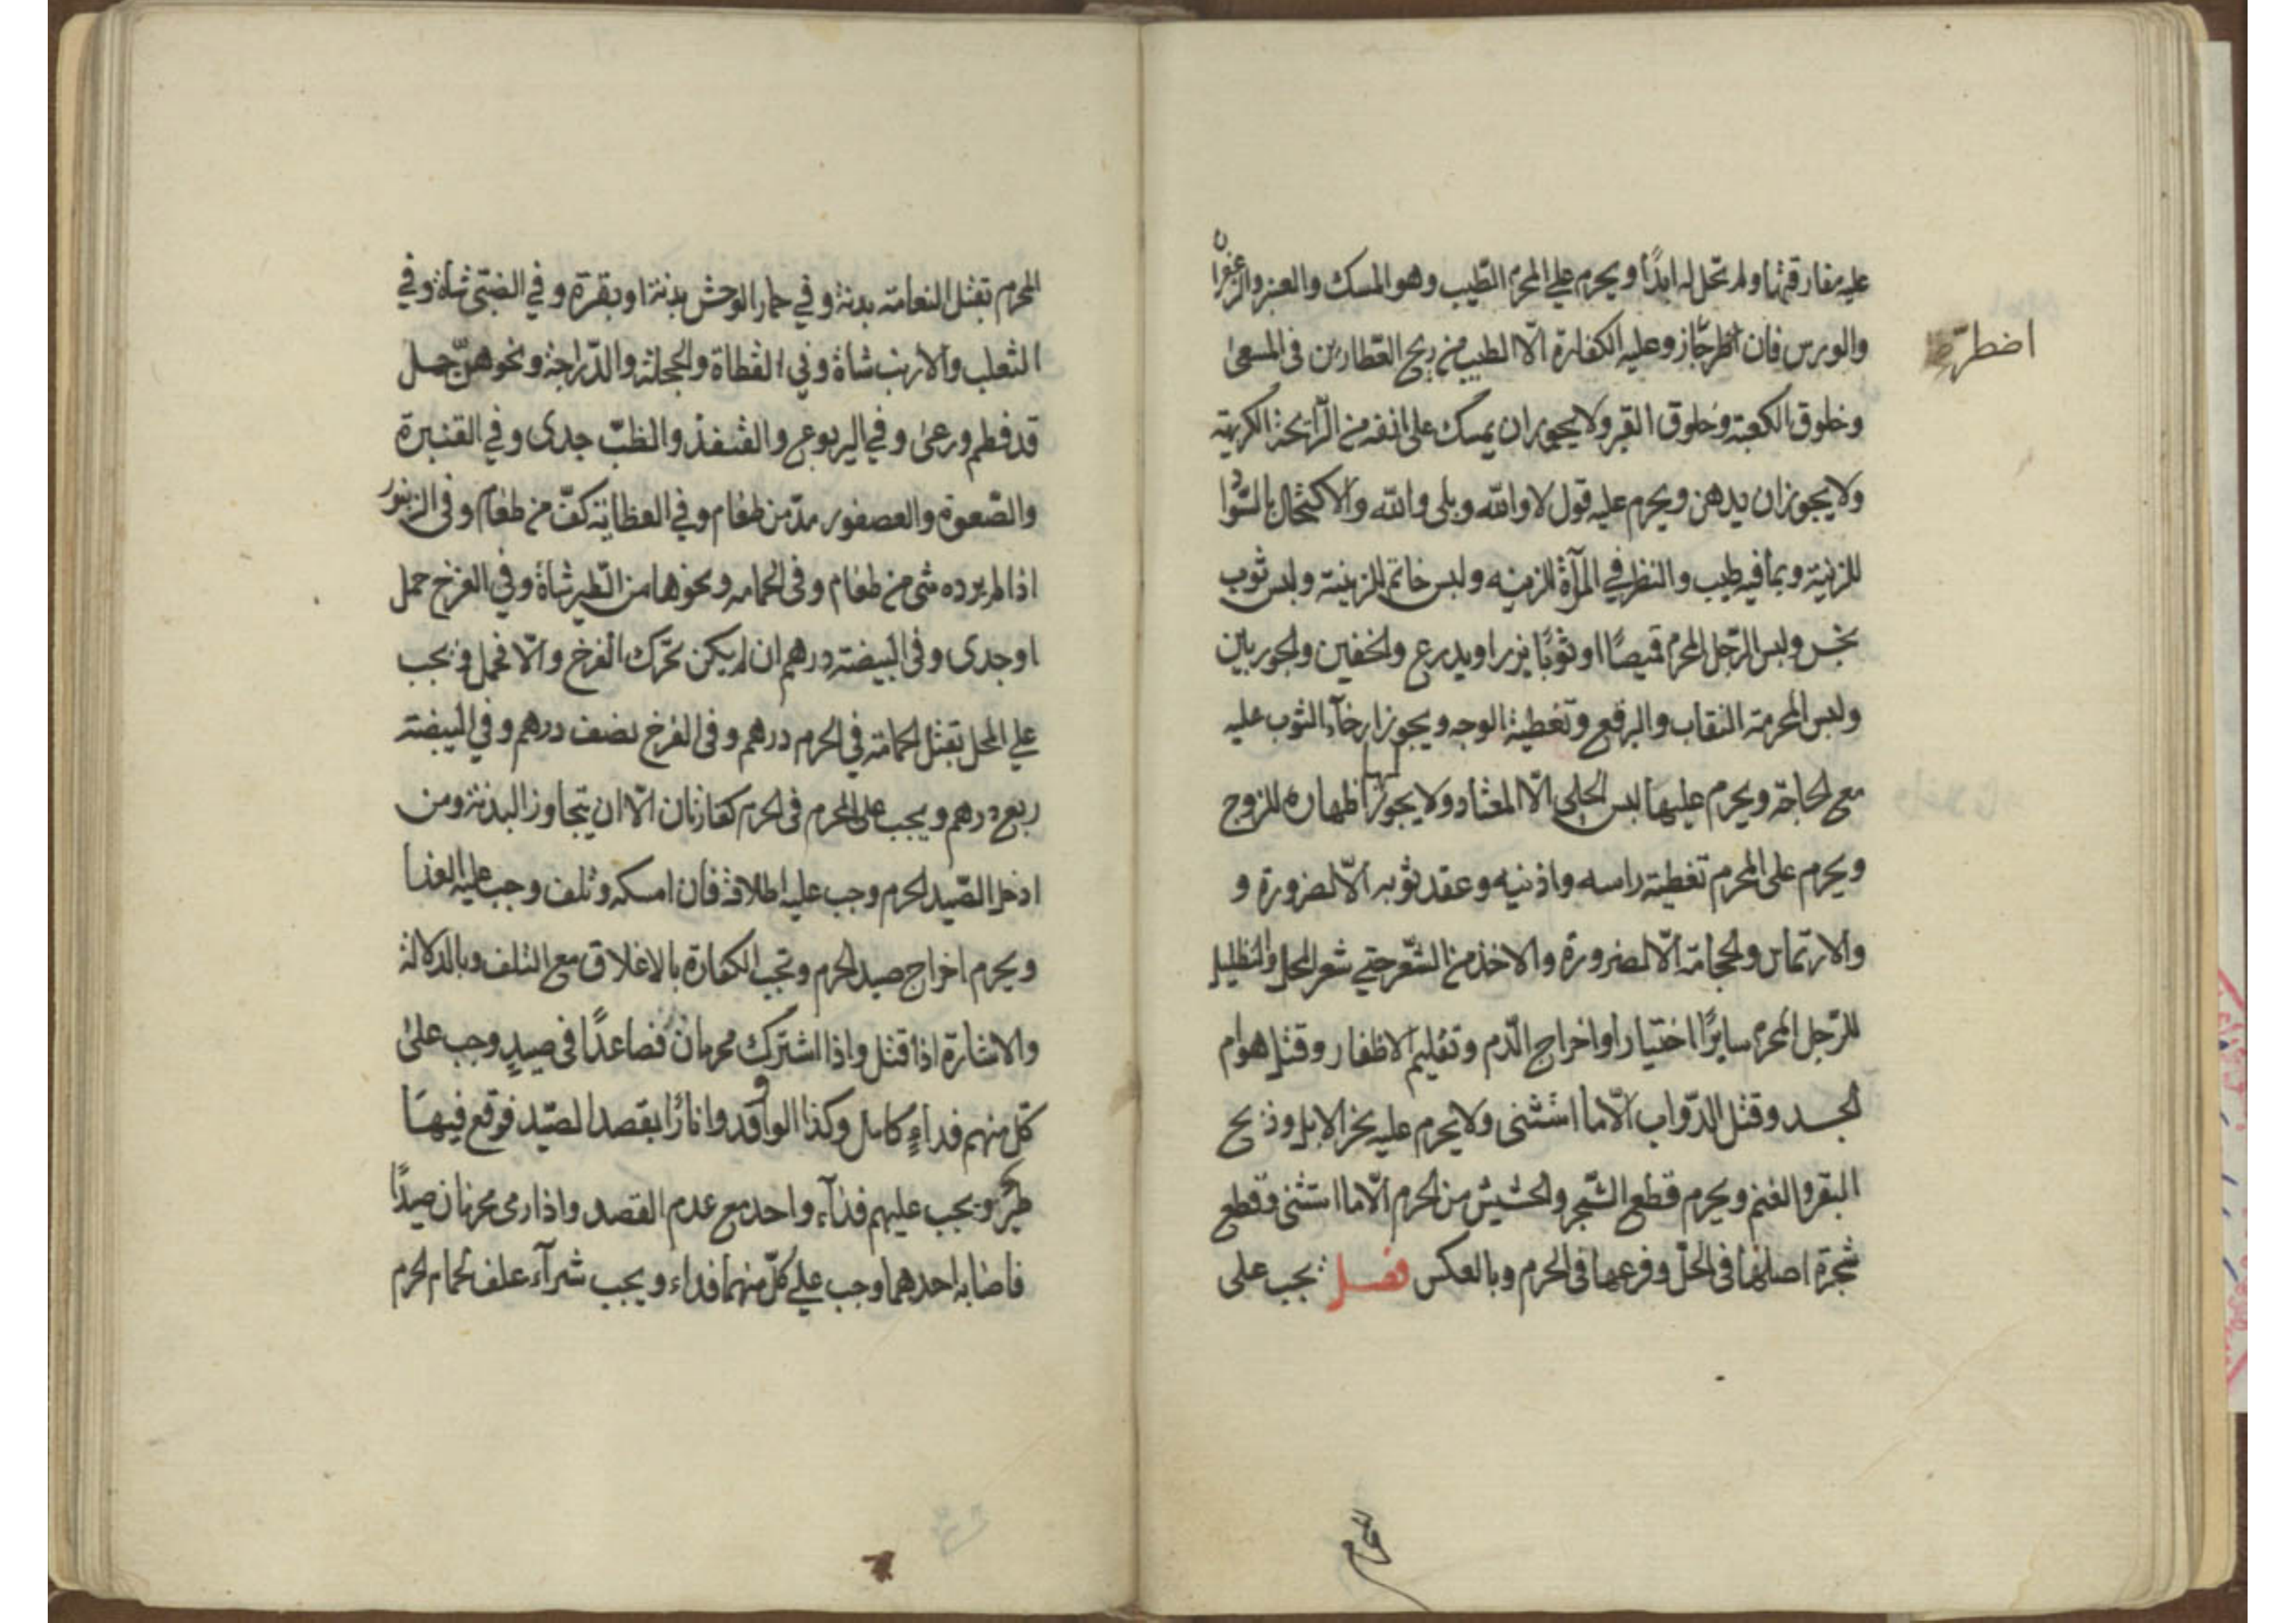 عليه مفارقتها ولم تحل له ابدًا ويحرم على المحرم الطّيب وهو المسك والعنبر والزعفران
والورس فان اظرّ جاز وعليه الكفارة الّا الطيب من ريح العطّارين فى المسعى
اضطرّ
وخلوق الكعبة وخلوق القبر ولا يجوز ان يمسك على انفه من الرّائحة الكريهة
ولا يجوز ان يدهن ويحرم عليه قول لا والله وبلى والله والاكتحال بالسّواد
للزينة وبما فيه طيب والنظر في المرآة للزينه ولبس خاتم للزينة ولبس ثوب
نجس ولبس الرّجل المحرم قميصًا او ثوبًا يزر او يدرع والخفين والجوربين
ولبس المحرمة النقاب والبرقع وتغطية الوجه ويجوز ارخآء الثوب عليه
مع الحاجة ويحرم عليها لبس الحلى الّا المعتاد ولا يجوز لها اظهاره للزوج
ويحرم على المحرم تغطية راسه واذنيه وعقد ثوبه الّا لضرورة و
والارتماس والحجامة الّا لضرورة والاخذ من الشّعر حتى شعر المحل والتظليل
للرّجل المحرم سايرًا اختيارا واخراج الدّم وتقليم الاظفار وقتل هوام
الجسد وقتل الدّواب الّا ما استثنى ولا يحرم عليه نحر الابل وذبح
البقر والغنم ويحرم قطع الشّجر والحشيش من الحرم الّا ما استثنى وقطع
شجرة اصلها فى الحلّ وفرعها فى الحرم وبالعكس فصل يجب على
المحرم
المحرم بقتل النعامة بدنة وفي حمار الوحش بدنة او بقرة وفي الضبى شاة وفي
الثعلب والارنب شاة وفي القطاة والحجلة والدّراجة ونحوهنّ حمل
قد فطم ورعى وفي اليربوع والقنفذ والظبّ جدى وفي القنبرة
والصّعوة والعصفور مدّ من طعام وفي العظاية كفّ من طعام وفى الزنبور
اذا لم يرده شى من طعام وفى الحمامه ونحوها من الطّير شاة وفي الفرخ حمل
او جدى وفى البيضة درهم ان لم يكن تحرّك الفرخ والّا فحمل ويجب
على المحل بقتل الحمامة في الحرم درهم وفى الفرخ نصف درهم وفي البيضة
ربع درهم ويجب على المحرم فى الحرم كفارتان الّا ان يتجاوز البدنة ومن
ادخل الصّيد الحرم وجب عليه اطلاقه فان امسكه وتلف وجب عليه الفدا
ويحرم اخراج صيد الحرم وتجب الكفارة بالاغلاق مع التلف وبالدلالة
والاشارة اذا قتل واذا اشترك محرمان فصاعدًا فى صيدٍ وجب على
كلّ منهم فداءٍ كامل وكذا الواقدوا نارًا بقصد الصّيد فوقع فيها
طيرٌ ويجب عليهم فدآء واحد مع عدم القصد واذا رمى محرمان صيدًا
فاصابه احدهما وجب على كلّ منهما فداء ويجب شرآء علف لحمام الحرم